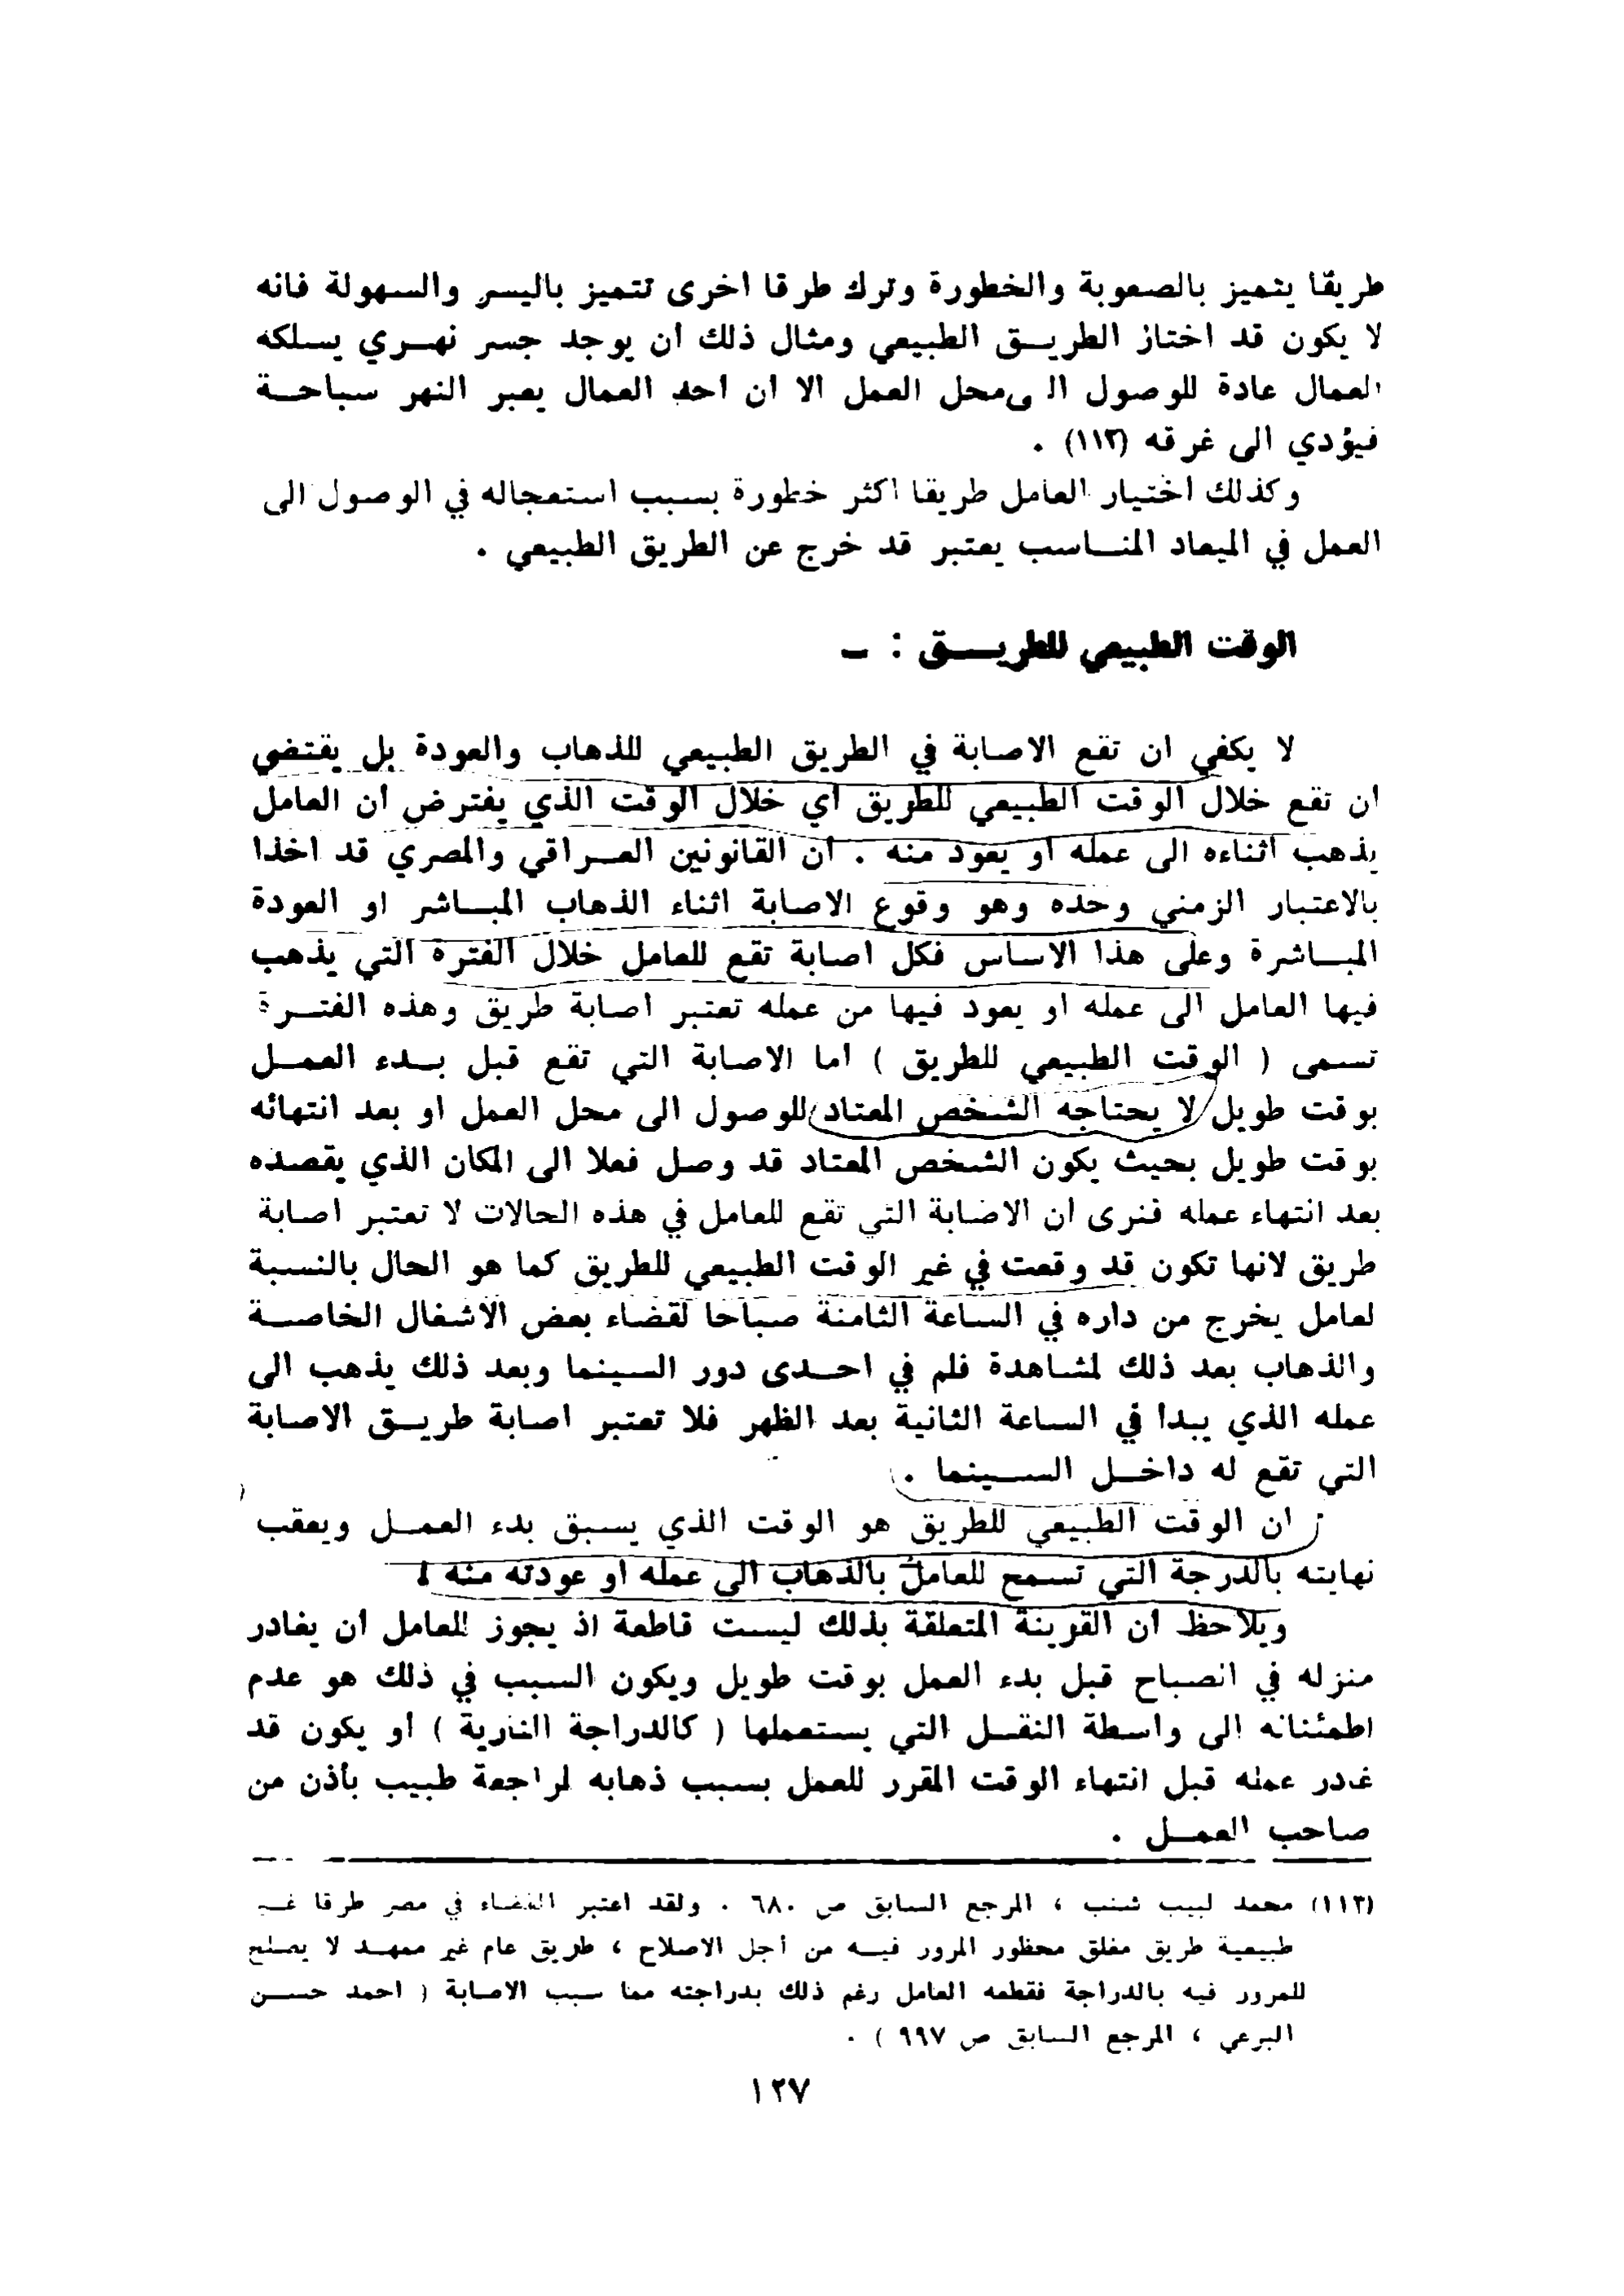 طريقا يتميز بالصعوبة والخطورة وترك طرقا اخرى تتميز باليسر والسهولة فانه
لا يكون قد اختاز الطريــق الطبيعي ومثال ذلك ان يوجد جسر نهــري يسلكه
العمال عادة للوصول الى محل العمل الا ان احد العمال يعبر النهر سباحــة
فيؤدي الى غرقه (١١٣) .
وكذلك اختيار العامل طريقا اكثر خطورة بسبب استعجاله في الوصول الى
العمل في الميعاد المنــاسب يعتبر قد خرج عن الطريق الطبيعي .
الوقت الطبيعي للطريـــق : ــ
لا يكفي ان تقع الاصابة في الطريق الطبيعي للذهاب والعودة بل يقتضي
ان تقع خلال الوقت الطبيعي للطريق أي خلال الوقت الذي يفترض أن العامل
يذهب أثناءه الى عمله او يعود منه . ان القانونين العــراقي والمصري قد اخذا
بالاعتبار الزمني وحده وهو وقوع الاصابة اثناء الذهاب المبــاشر او العودة
المبــاشرة وعلى هذا الاساس فكل اصابة تقع للعامل خلال الفترة التي يذهب
فيها العامل الى عمله او يعود فيها من عمله تعتبر اصابة طريق وهذه الفتــرة
تسمى ( الوقت الطبيعي للطريق ) اما الاصابة التي تقع قبل بــدء العمــل
بوقت طويل لا يحتاجه الشخص المعتاد للوصول الى محل العمل او بعد انتهائه
بوقت طويل بحيث يكون الشخص المعتاد قد وصل فعلا الى المكان الذي يقصده
بعد انتهاء عمله فنرى ان الاصابة التي تقع للعامل في هذه الحالات لا تعتبر اصابة
طريق لانها تكون قد وقعت في غير الوقت الطبيعي للطريق كما هو الحال بالنسبة
لعامل يخرج من داره في الساعة الثامنة صباحا لقضاء بعض الاشغال الخاصــة
والذهاب بعد ذلك لمشاهدة فلم في احــدى دور السينما وبعد ذلك يذهب الى
عمله الذي يبدا في الساعة الثانية بعد الظهر فلا تعتبر اصابة طريــق الاصابة
التي تقع له داخــل الســينما .
ان الوقت الطبيعي للطريق هو الوقت الذي يسبق بدء العمــل ويعقب
نهايته بالدرجة التي تسمح للعامل بالذهاب الى عمله او عودته منه .
ويلاحظ ان القرينة المتعلقة بذلك ليست قاطعة اذ يجوز للعامل ان يغادر
منزله في الصباح قبل بدء العمل بوقت طويل ويكون السبب في ذلك هو عدم
اطمئنانه الى واسطة النقــل التي يستعملها ( كالدراجة النارية ) أو يكون قد
غادر عمله قبل انتهاء الوقت المقرر للعمل بسبب ذهابه لمراجعة طبيب بأذن من
صاحب العمــل .
(١١٣) محمد لبيب شنب ، المرجع السابق ص ٦٨٠ . ولقد اعتبر القضاء في مصر طرقا غــير
طبيعية طريق مغلق محظور المرور فيــه من أجل الاصلاح ، طريق عام غير ممهــد لا يصلح
للمرور فيه بالدراجة فقطعه العامل رغم ذلك بدراجته مما سبب الاصابة ( احمد حســن
البرعي ، المرجع السابق ص ٩٩٧ ) .
١٢٧